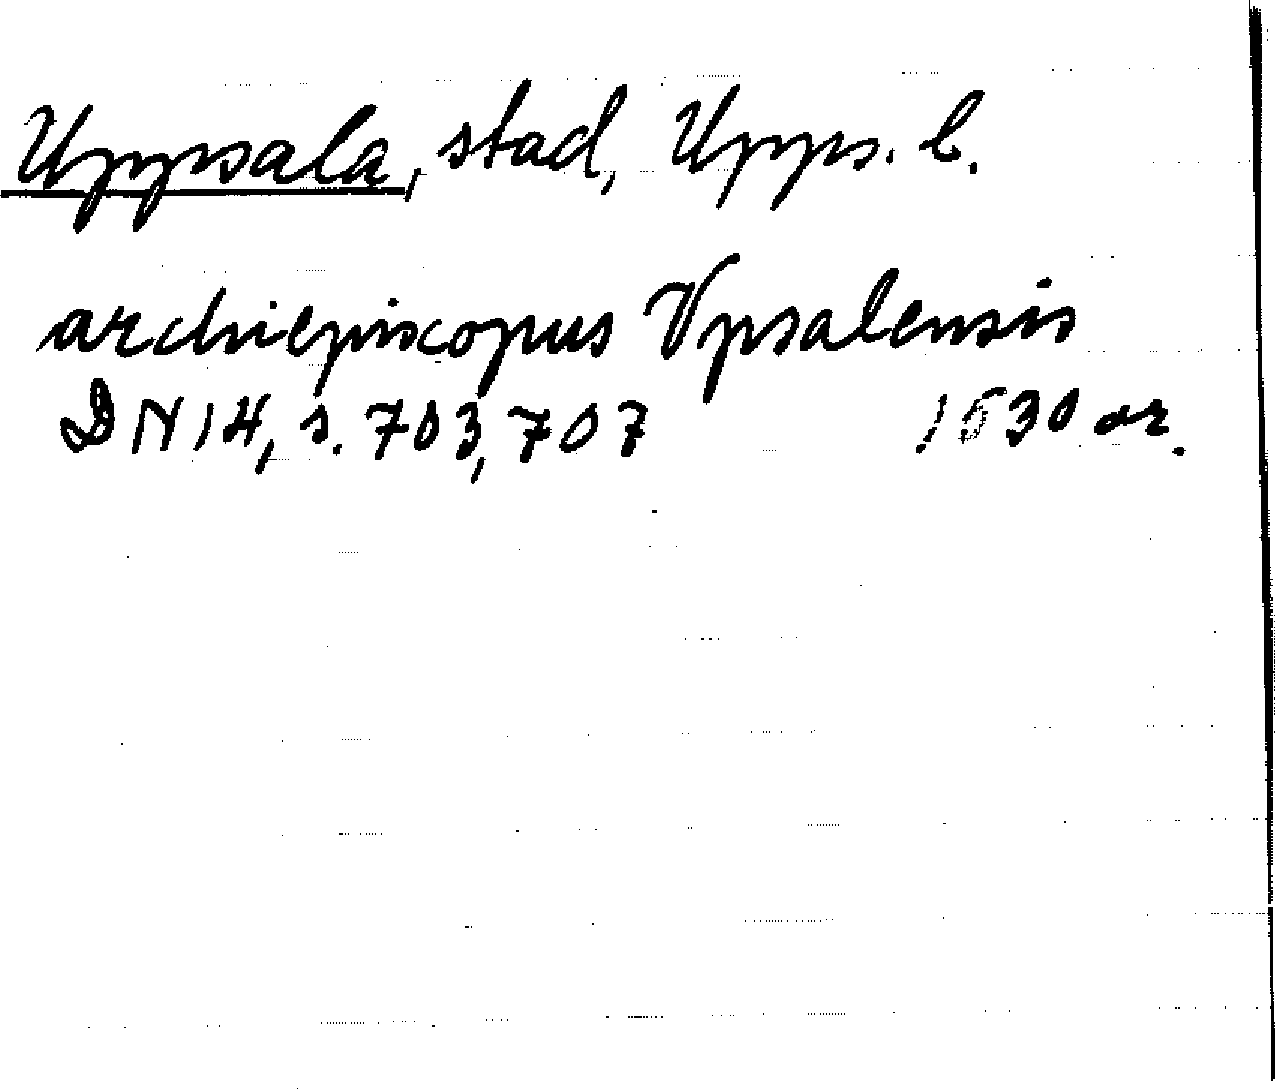 Uppsala, stad, Upps. l.
archiepiscopus Vpsalensis
DN 14, s. 703, 707 1530 or.